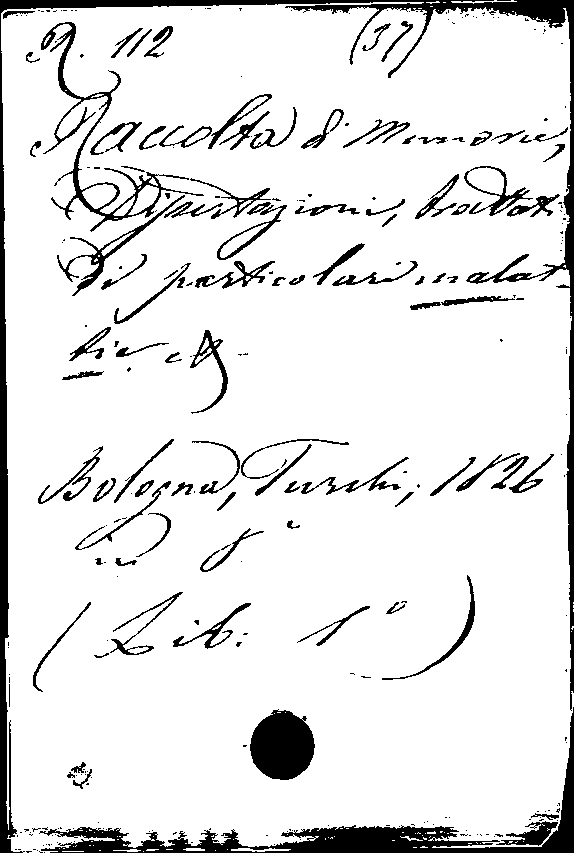 R. 112 (37)
Raccolta di Memorie,
Dissertazioni, trattati
di particolari malat-
tie. ec.
Bologna, Turchi, 1826
in 8°
(Lib: 1°)